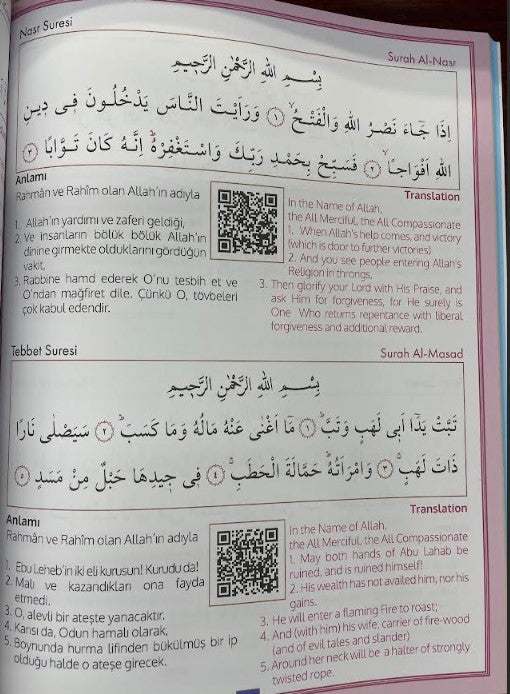 Nasr Suresi
Surah Al-Nasr
بِسْمِ اللهِ الرَّحْمٰنِ الرَّحِيمِ
اِذَا جَٓاءَ نَصْرُ اللهِ وَالْفَتْحُۙ ﴿١﴾ وَرَاَيْتَ النَّاسَ يَدْخُلُونَ فٖى دٖينِ
اللهِ اَفْوَاجًاۙ ﴿٢﴾ فَسَبِّحْ بِحَمْدِ رَبِّكَ وَاسْتَغْفِرْهُۜ اِنَّهُ كَانَ تَوَّابًا ﴿٣﴾
Anlamı
Rahmân ve Rahîm olan Allah'ın adıyla
1. Allah'ın yardımı ve zaferi geldiği,
2. Ve insanların bölük bölük Allah'ın
dinine girmekte olduklarını gördüğün
vakit,
3. Rabbine hamd ederek O'nu tesbih et ve
O'ndan mağfiret dile. Çünkü O, tövbeleri
çok kabul edendir.
Translation
In the Name of Allah,
the All Merciful, the All Compassionate
1. When Allah's help comes, and victory
(which is door to further victories)
2. And you see people entering Allah's
Religion in throngs,
3. Then glorify your Lord with His Praise, and
ask Him for forgiveness, for He surely is
One Who returns repentance with liberal
forgiveness and additional reward.
Tebbet Suresi
Surah Al-Masad
بِسْمِ اللهِ الرَّحْمٰنِ الرَّحٖيمِ
تَبَّتْ يَدَٓا اَبٖى لَهَبٍ وَتَبَّۜ ﴿١﴾ مَٓا اَغْنٰى عَنْهُ مَالُهُ وَمَا كَسَبَۜ ﴿٢﴾ سَيَصْلٰى نَارًا
ذَاتَ لَهَبٍۚ ﴿٣﴾ وَامْرَاَتُهُۜ حَمَّالَةَ الْحَطَبِۚ ﴿٤﴾ فٖى جٖيدِهَا حَبْلٌ مِنْ مَسَدٍ ﴿٥﴾
Anlamı
Rahmân ve Rahîm olan Allah'ın adıyla
1. Ebu Leheb'in iki eli kurusun! Kurudu da!
2. Malı ve kazandıkları ona fayda
etmedi.
3. O, alevli bir ateşte yanacaktır.
4. Karısı da, Odun hamalı olarak,
5. Boynunda hurma lifinden bükülmüş bir ip
olduğu halde o ateşe girecek.
Translation
In the Name of Allah,
the All Merciful, the All Compassionate
1. May both hands of Abu Lahab be
ruined, and is ruined himself!
2. His wealth has not availed him, nor his
gains.
3. He will enter a flaming Fire to roast;
4. And (with him) his wife, carrier of fire-wood
(and of evil tales and slander)
5. Around her neck will be a halter of strongly
twisted rope.